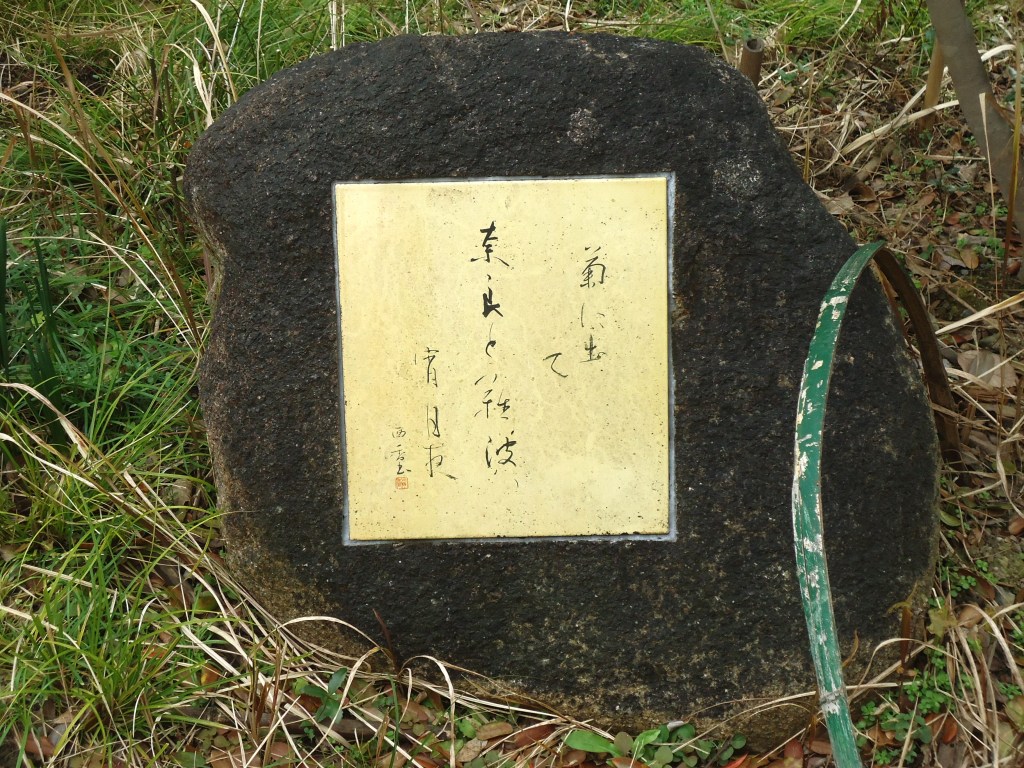 菊に出て
奈良と難波は
宵月夜